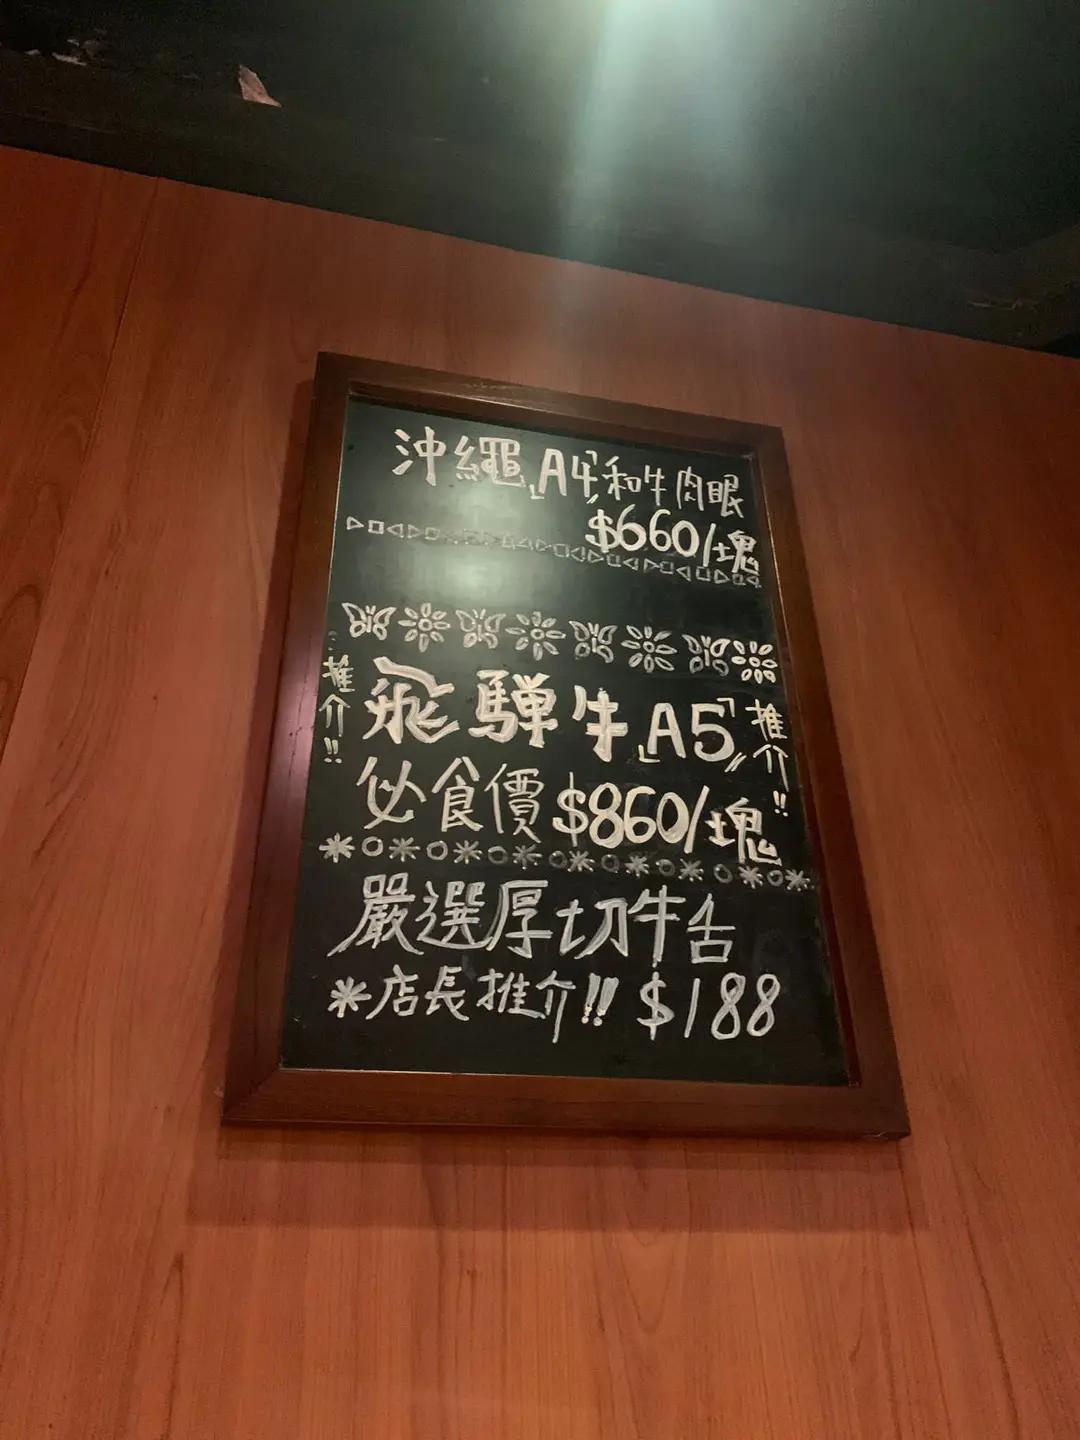 沖繩「A4」和牛肉眼
$660/塊
推介!!
飛驒牛「A5」
推介!!
必食價 $860/塊
嚴選厚切牛舌
*店長推介!! $188